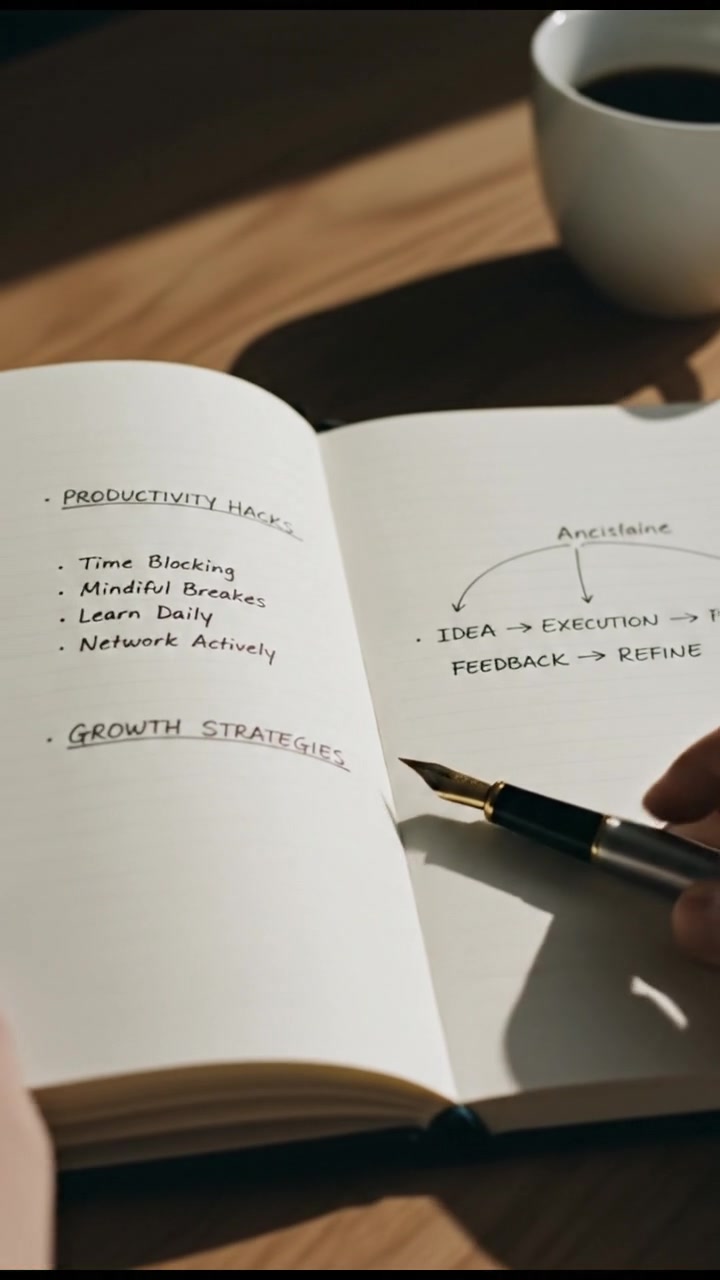 · PRODUCTIVITY HACKS
· Time Blocking
· Mindiful Breakes
· Learn Daily
· Network Actively
· GROWTH STRATEGIES
Ancislaine
· IDEA → EXECUTION →
FEEDBACK → REFINE